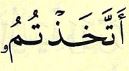 أَتَّخَذْتُمُۥ